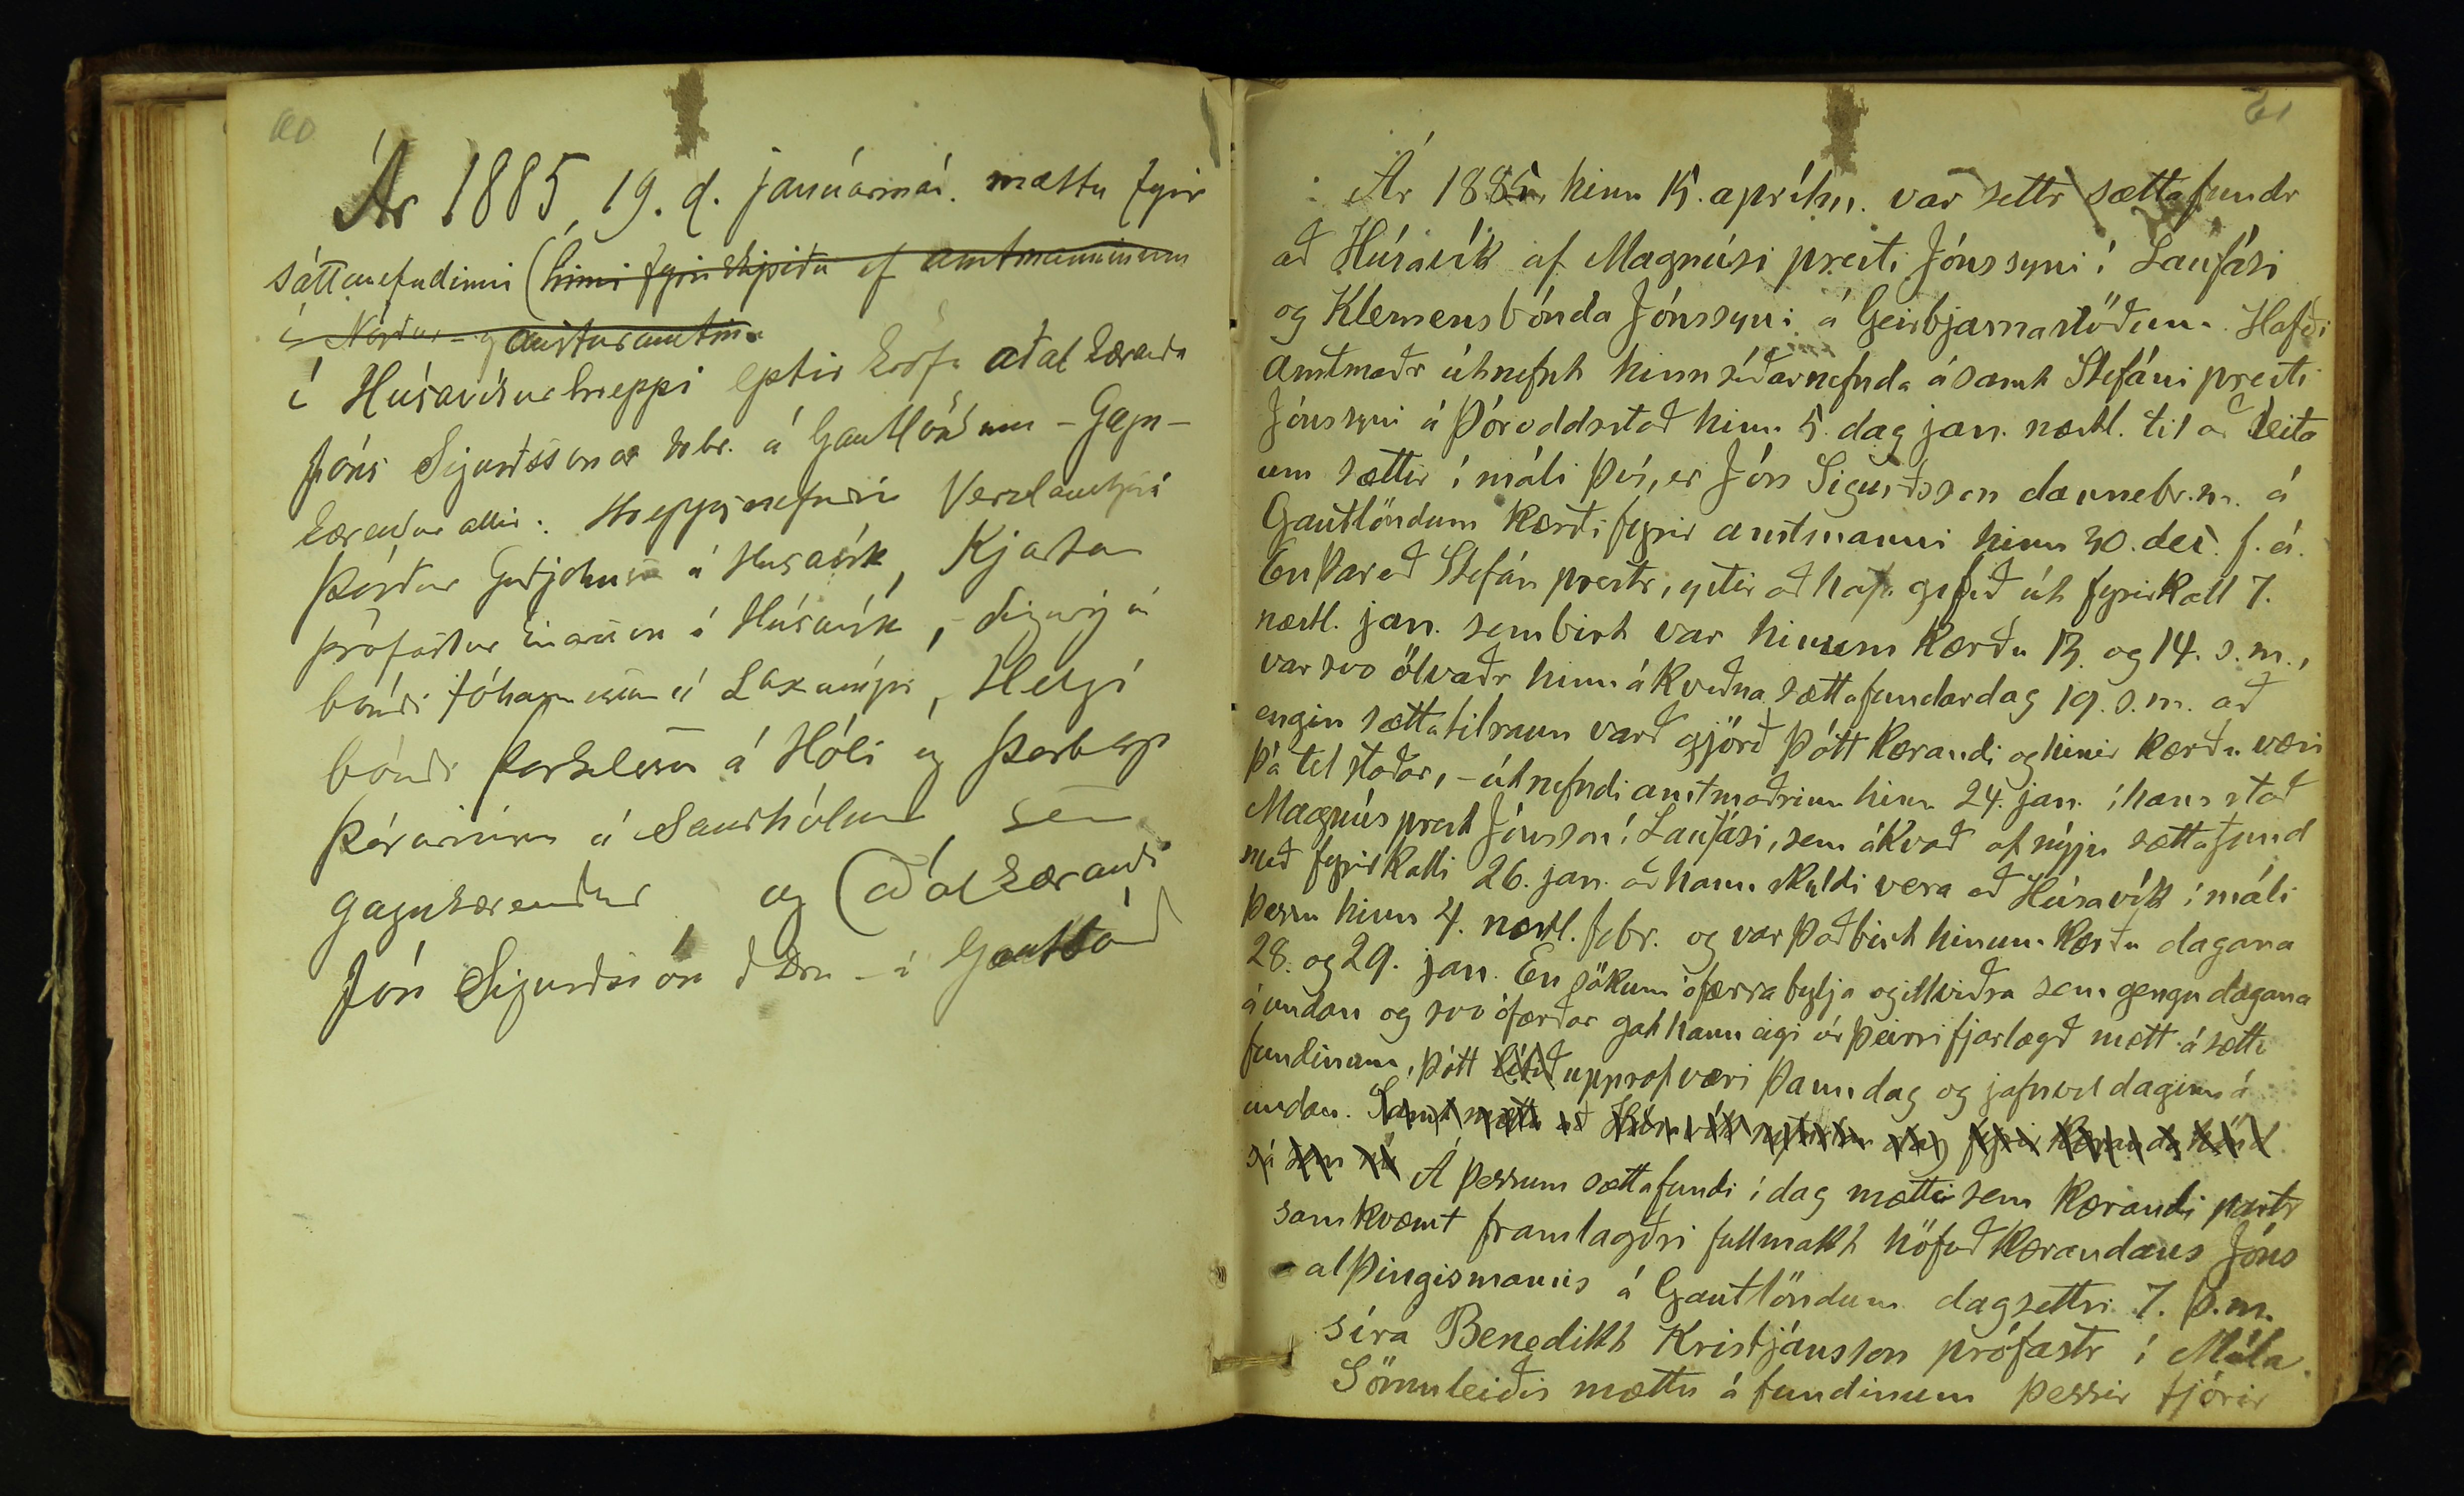 60
Ár 1885, 19. d. janúarmán. mættu fyrir
sáttanefndinni (hinni fyrirskipuðu af amtmanninum
í Norður- og austuramtinu
í Húsavíkurhreppi eptir kröfu aðalkæranda
Jóns Sigurðssonar dbr. á Gautlöndum - Gagn-
kærendur allir: Hreppsnefndin Verzlunarstjóri
Þórður Guðjohnsen á Húsavík, Kjartan
prófastur Einarsson á Húsavík, Sigurjón
bóndi Jóhannesson á Laxamýri, Helgi
bóndi Þorkelsson á Hóli og Þorbergr
Þórarinsson á Sandhólum sem
gagnkærendur og (aðalkærandi
Jón Sigurðsson dbrm - á Gautlönd
61
Ár 1885 hinn 15. apríl m. var settr sættafundr
að Húsavík af Magnúsi presti Jónssyni í Laufási
og Klemens bónda Jónssyni á Geirbjarnastöðum. Hafði
amtmaðr útnefnt hinn síðarnefnda ásamt Stefáni presti
Jónssyni á Þóroddstað hinn 5. dag jan. næstl. til að leita
um sættir í máli því, er Jón Sigurðsson dannebr.m. á
Gautlöndum kærði fyrir amtmanni hinn 30. des. f. á.
En þareð Stefán prestr, eptir að hafa gefið út fyrirkall 7.
næstl. jan. sem birt var hinum kærðu 13. og 14. s. m.,
var svo ölvaðr hinn ákveðna sættafundardag 19. s. m. að
engin sættatilraun varð gjörð þótt kærandi og hinir kærðu væri
þá til staðar, - útnefndi amtmaðrinn hinn 24. jan. í hans stað
Magnús prest Jónsson í Laufási, sem ákvað af nýju sættafund
með fyrirkalli 26. jan. að hann skyldi vera að Húsavík í máli
þessu hinn 4. næstl. febr. og var það birt hinum kærðu dagana
28. og 29. jan. En sökum ófærra bylja og illviðra sem gengu dagana
á undan og svo ófærðar gat hann eigi úr þeirri fjarlægð mætt á sætta
fundinum, þótt lítið upprof væri þann dag og jafnvel daginn á
undan. Samt mætti að Húsavík nefndan dag fyrir kæranda hönd
sá sem nú Á þessum sættafundi í dag mætti sem kærandi partr
samkvæmt framlagðri fullmakt höfuðkærandans Jóns
alþingismanns á Gautlöndum dagsettri 7. þ. m.
síra Benedikt Kristjánsson prófastr í Múla.
Sömuleiðis mættu á fundinum þessir fjórir